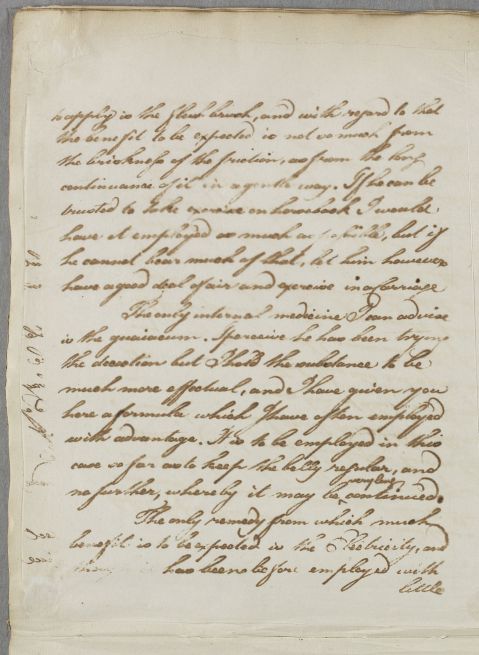 to apply is the flesh brush, and with regard to that
the benefit to be expected is not so much from
the briskness of the friction, as from the long
continuance of it in a gentle way. If he can be
trusted to take exercise on horseback I would
have it employed as much as possible, but if
he cannot bear much of that, let him however
have a good deal of air and exercise in a Carriage
The only internal medicine I can advise
is the guaiacum. I perceive he has been trying
the decoction but I hold the substance to be
much more effectual, and I have given you
here a formula which I have often employed
with advantage. It is to be employed in this
case so far as to keep the belly regular, and
no further, whereby it may be very long continued.
The only remedy from which much
benefit is to be expected is the Electricity, and
has been before employed with
little